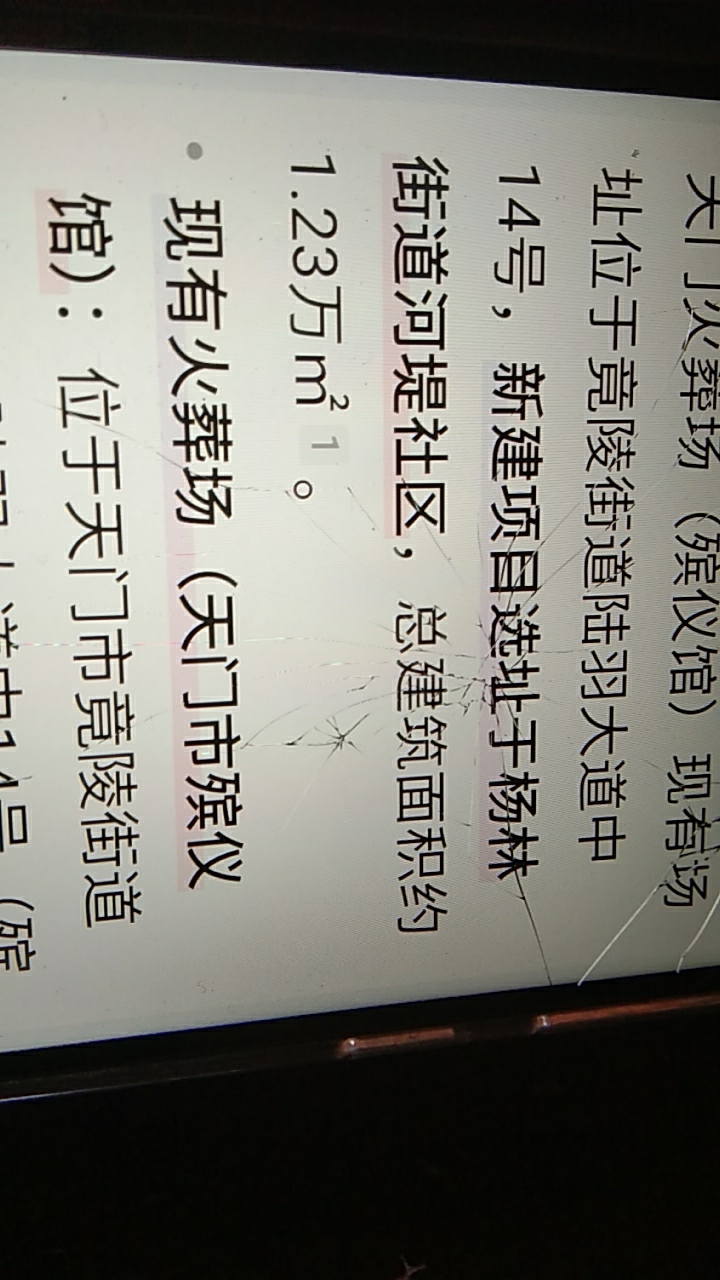 天门火葬场（殡仪馆）现有场
址位于竟陵街道陆羽大道中
14号，新建项目选址于杨林
街道河堤社区，总建筑面积约
1.23万m² 1 。
• 现有火葬场（天门市殡仪
馆）：位于天门市竟陵街道
道中14号（殡